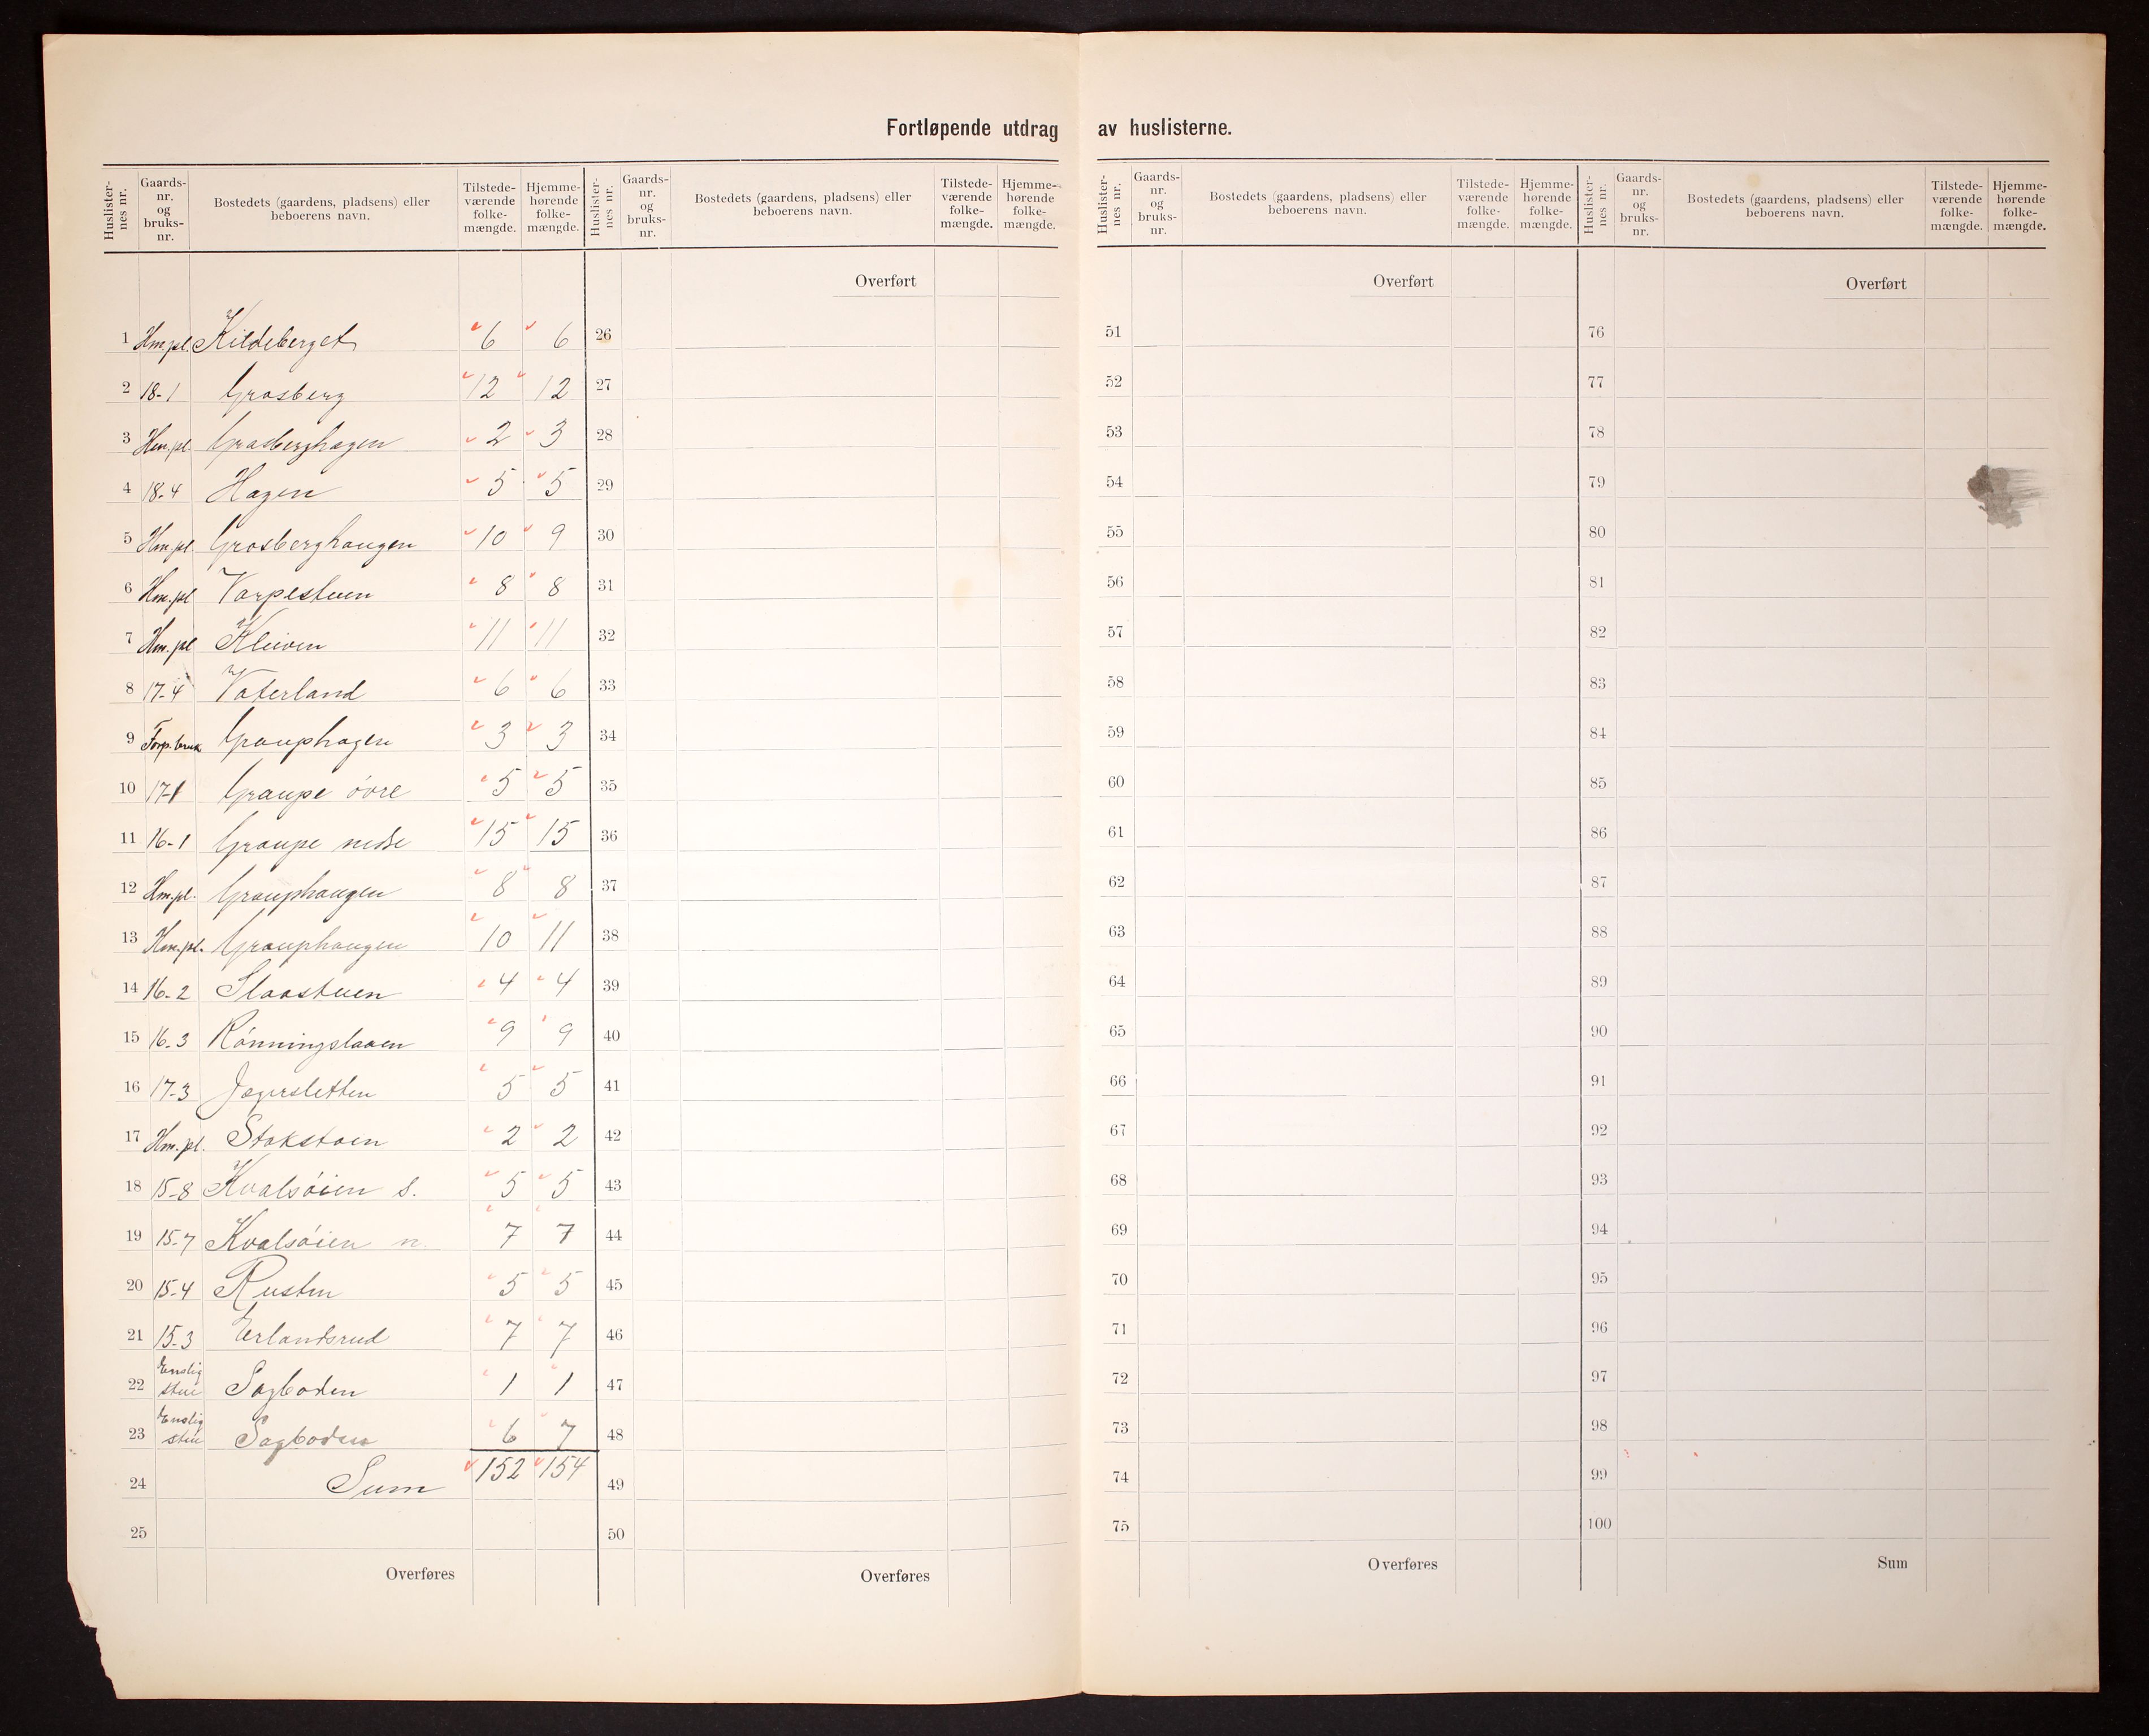 Fortløpende utdrag av huslisterne.
Huslisternes nr. Gaards-nr. og bruks-nr. Bostedets (gaardens, pladsens) eller beboerens navn. Tilstede-værende folke-mængde. Hjemme-hørende folke-mængde.
Huslisternes nr. Gaards-nr. og bruks-nr. Bostedets (gaardens, pladsens) eller beboerens navn. Tilstede-værende folke-mængde. Hjemme-hørende folke-mængde.
Huslisternes nr. Gaards-nr. og bruks-nr. Bostedets (gaardens, pladsens) eller beboerens navn. Tilstede-værende folke-mængde. Hjemme-hørende folke-mængde.
Huslisternes nr. Gaards-nr. og bruks-nr. Bostedets (gaardens, pladsens) eller beboerens navn. Tilstede-værende folke-mængde. Hjemme-hørende folke-mængde.
1 Hm.pl. Kildeberget 6 6
2 18-1 Grosberg 12 12
3 Hm.pl. Grosberghagen 2 3
4 18.4 Hagen 5 5
5 Hm.pl. Grosberghaugen 10 9
6 Hm.pl Vorpestuen 8 8
7 Hm.pl Kleiven 11 11
8 17-4 Vaterland 6 6
9 Forp.bruk Grauphagen 3 3
10 17-1 Graupe övre 5 5
11 16-1 Graupe nedre 15 15
12 Hm.pl. Grauphaugen 8 8
13 Hm.pl. Grauphaugen 10 11
14 16-2 Slaastuen 4 4
15 16-3 Rönningslaaen 9 9
16 17-3 Jægersletten 5 5
17 Hm.pl. Stokstaen 2 2
18 15-8 Kvalsöien s. 5 5
19 15-7 Kvalsöien n. 7 7
20 15-4 Rusten 5 5
21 15-3 Erlandsrud 7 7
22 Enslig stue Sagboden 1 1
23 Enslig stue Sagboden 6 7
24 Sum 152 154
25
Overføres
Overført
26
27
28
29
30
31
32
33
34
35
36
37
38
39
40
41
42
43
44
45
46
47
48
49
50
Overføres
Overført
51
52
53
54
55
56
57
58
59
60
61
62
63
64
65
66
67
68
69
70
71
72
73
74
75
Overføres
Overført
76
77
78
79
80
81
82
83
84
85
86
87
88
89
90
91
92
93
94
95
96
97
98
99
100
Sum